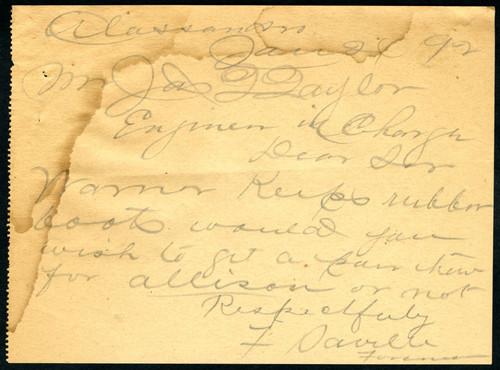 Alassandro
Jan 21 92
Mr Jas T Taylor
Engineer in Charge
Dear Sir
Warner Keeps rubber
boots would you
wish to get a pair thew
for allison or not
Respectfully
F Daville
Foreman